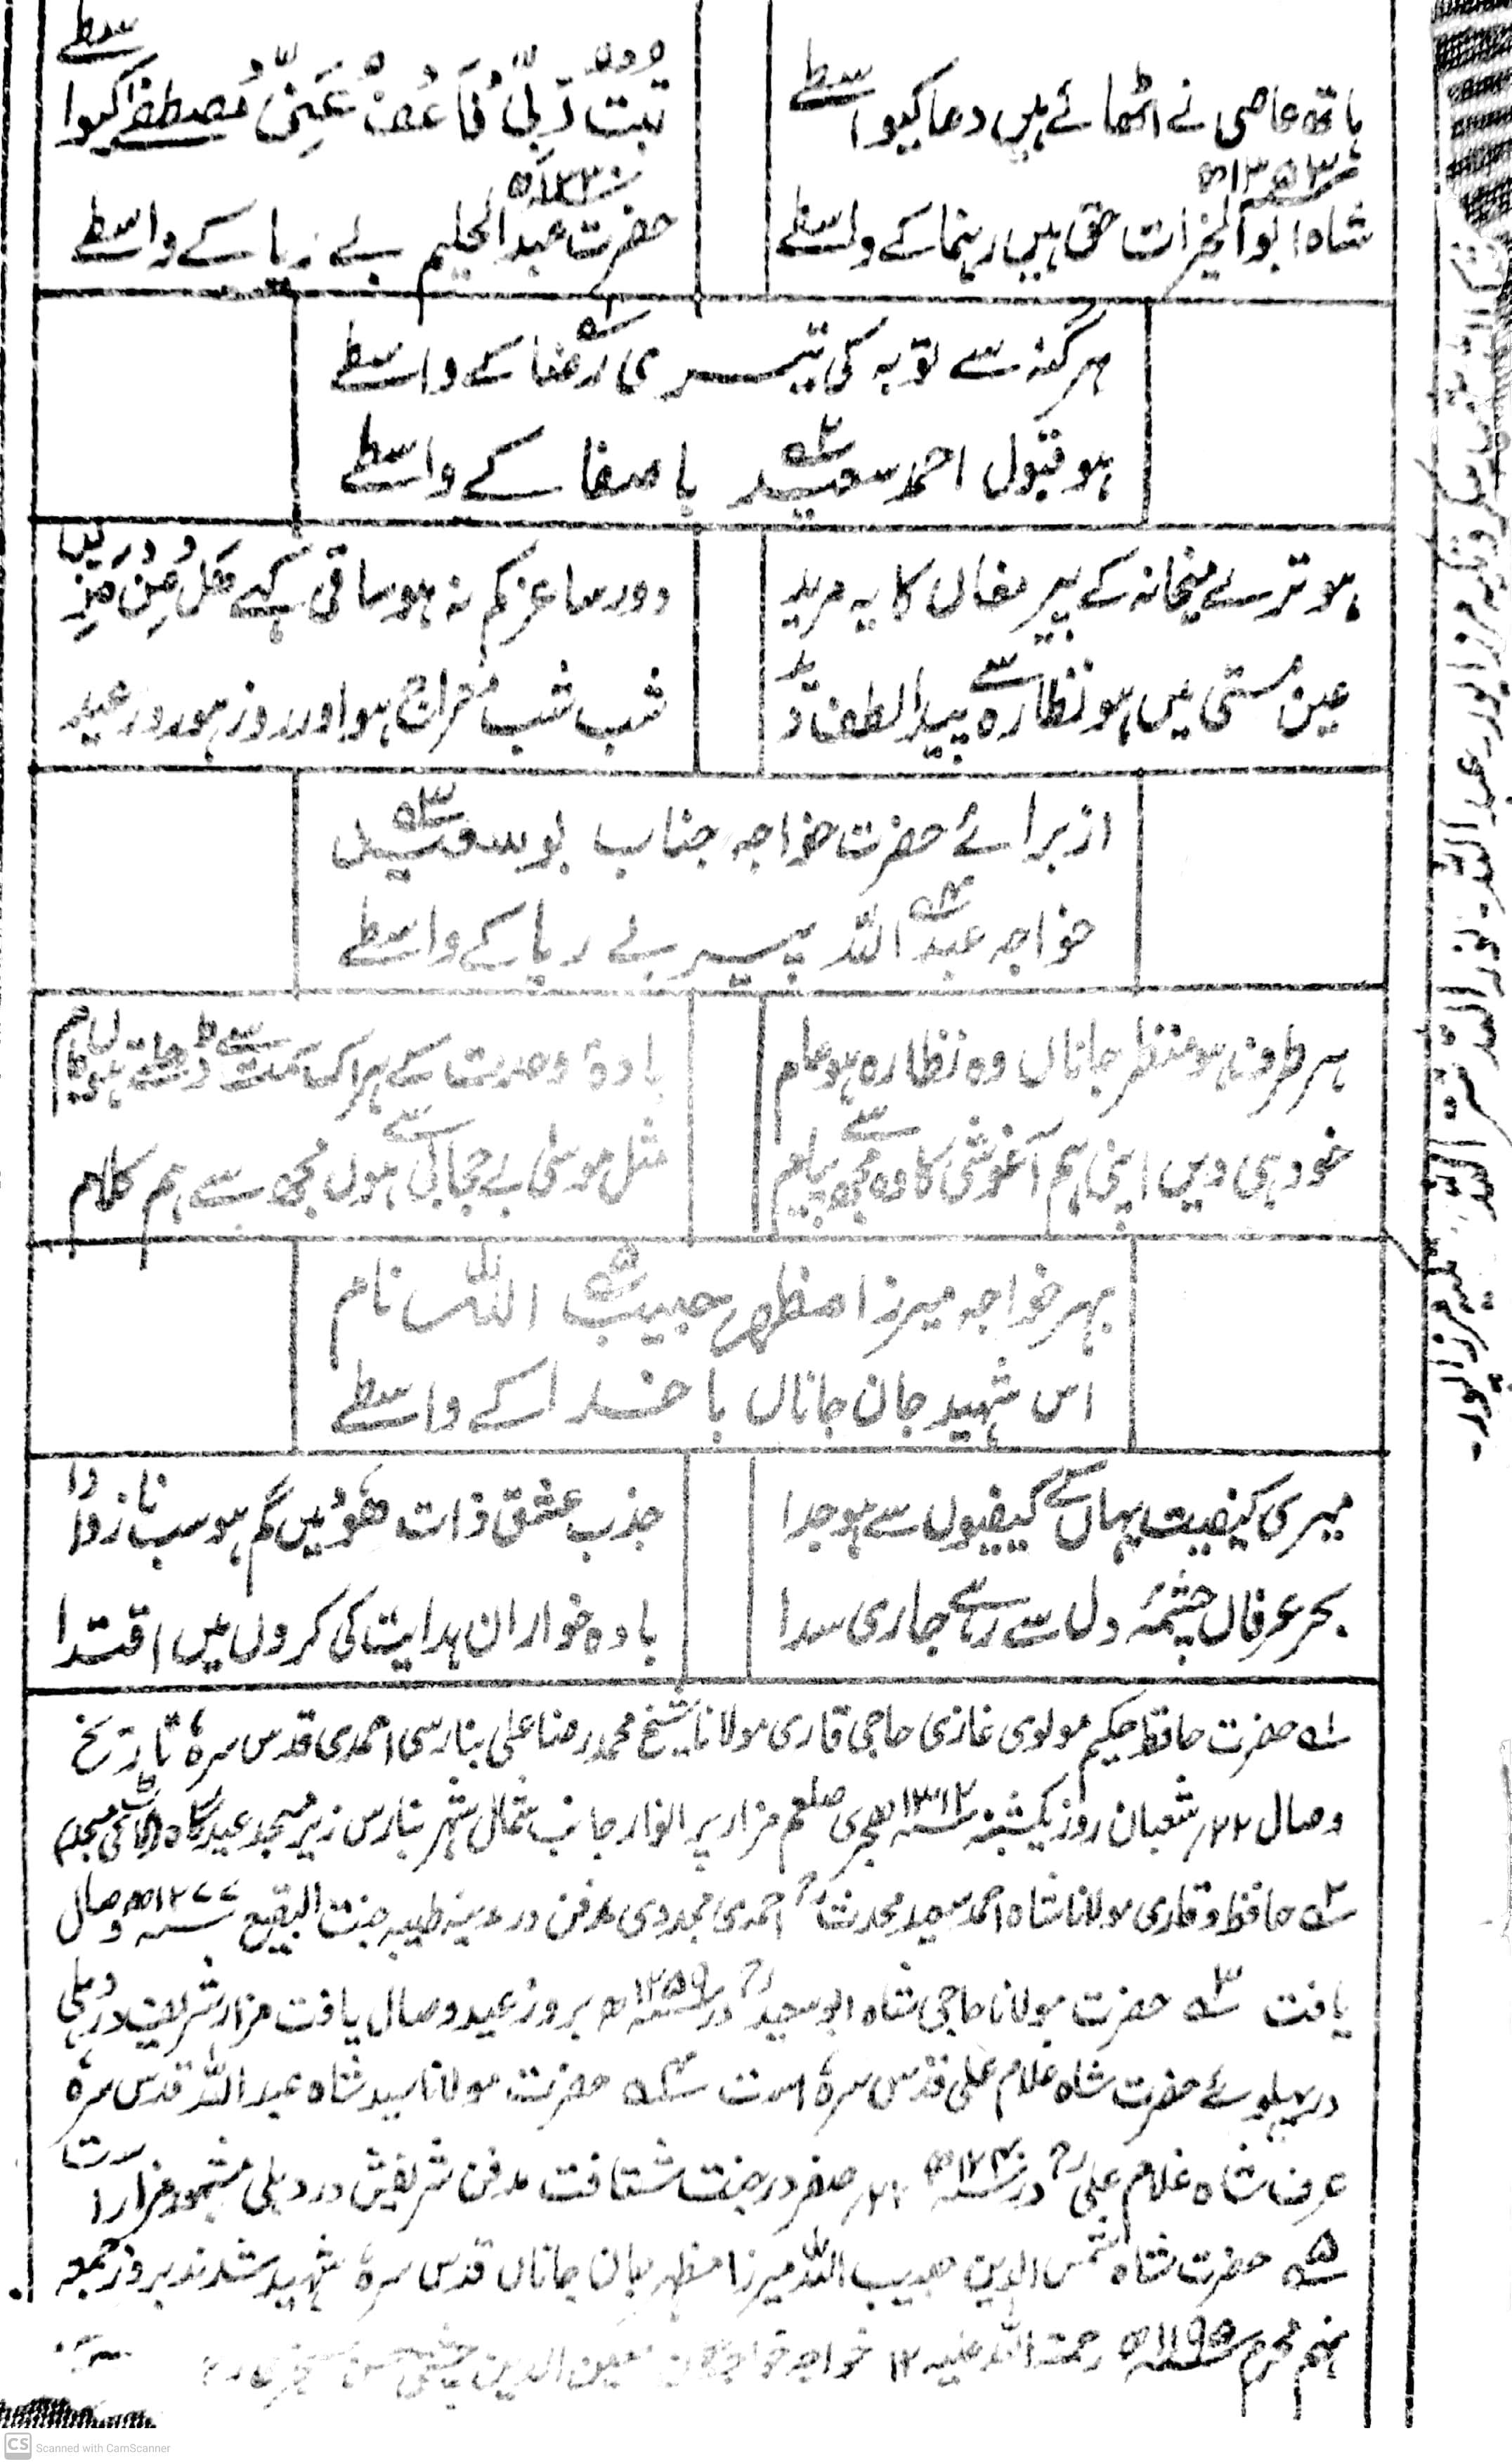 ہاتھ عاصی نے اٹھائے ہیں دعا کیواسطے
تبت ربی فاعف عنی مصطفےٰ کیواسطے
۱۳۵۳ھ
شاہ ابوالخیرات حق ہیں رہنما کے واسطے
حضرت عبدالحلیم بے ریا کے واسطے
ہر گنہ سے توبہ کی تیری رضا کے واسطے
ہو قبول احمد سعید با صفا کے واسطے
ہو ترے میخانہ کے پیر مغاں کا یہ مرید
دور ساغر کم نہ ہو ساقی کہے ھل من مزید
عین مستی میں ہو نظارہ سے پیدا لطف
شب شب معراج ہو اور روز ہو روز عید
از برائے حضرت خواجہ جناب بوسعید
خواجہ عبداللہ پیر بے ریا کے واسطے
ہر طرف ہو منظر جاناں وہ نظارہ ہو عام
بادۂ وحدت سے ہر اک سمت سے ڈھلتے ہوں جام
خود ہی دیں اپنی ہم آغوشی کا وہ مجھے پیام
مثل موسیٰ بے حجابی سے ہوں مجھ سے ہم کلام
بہر خواجہ میرزا مظہر حبیب اللہ نام
اس شہید جان جاناں با خدا کے واسطے
میری کیفیت یہاں کے کیفیوں سے ہو جدا
جذب عشق ذات ھو میں گم ہو سب ناز و ادا
بحر عرفاں چشمۂ دل سے رہے جاری سدا
بادہ خواران ہدایت کی کروں میں اقتدا
۱؎ حضرت حافظ حکیم مولوی غازی حاجی قاری مولانا شیخ محمد رضا علی بنارسی احمدی قدس سرہٗ تاریخ
وصال ۲۲؍ شعبان روز یکشنبہ ۱۳۱۲ ہجری صلعم مزار پر انوار جانب شمال شہر بنارس زیر مسجد عیدگاہ (لاٹ کی مسجد)
۲؎ حافظ و قاری مولانا شاہ احمد سعید محدث رح احمدی مجددی مدفن در مدینہ طیبہ جنت البقیع ۱۲۷۷ھ وصال
یافت ۳؎ حضرت مولانا حاجی شاہ ابوسعید رح در ۱۲۵۹ھ بروز عید وصال یافت مزار شریف در دہلی
در پہلوئے حضرت شاہ غلام علی قدس سرہٗ است ۴؎ حضرت مولانا سید شاہ عبداللہ قدس سرہٗ
عرف شاہ غلام علی رح در ۱۲۴۰ھ ۲۲؍ صفر در جنت شتافت مدفن شریفش در دہلی مشہور مزار است
۵؎ حضرت شاہ شمس الدین حبیب اللہ میرزا مظہر جان جاناں قدس سرہٗ شہید شدند بروز جمعہ
نہم محرم ۱۱۹۵ھ رحمۃ اللہ علیہ ۱۲ خواجہ خواجگان معین الدین چشتی حسن سنجری رح
مرزاپور، عبداللہ۔ نور اللہ تربت اللہ تکیہ مرزاپور۔
CS Scanned with CamScanner